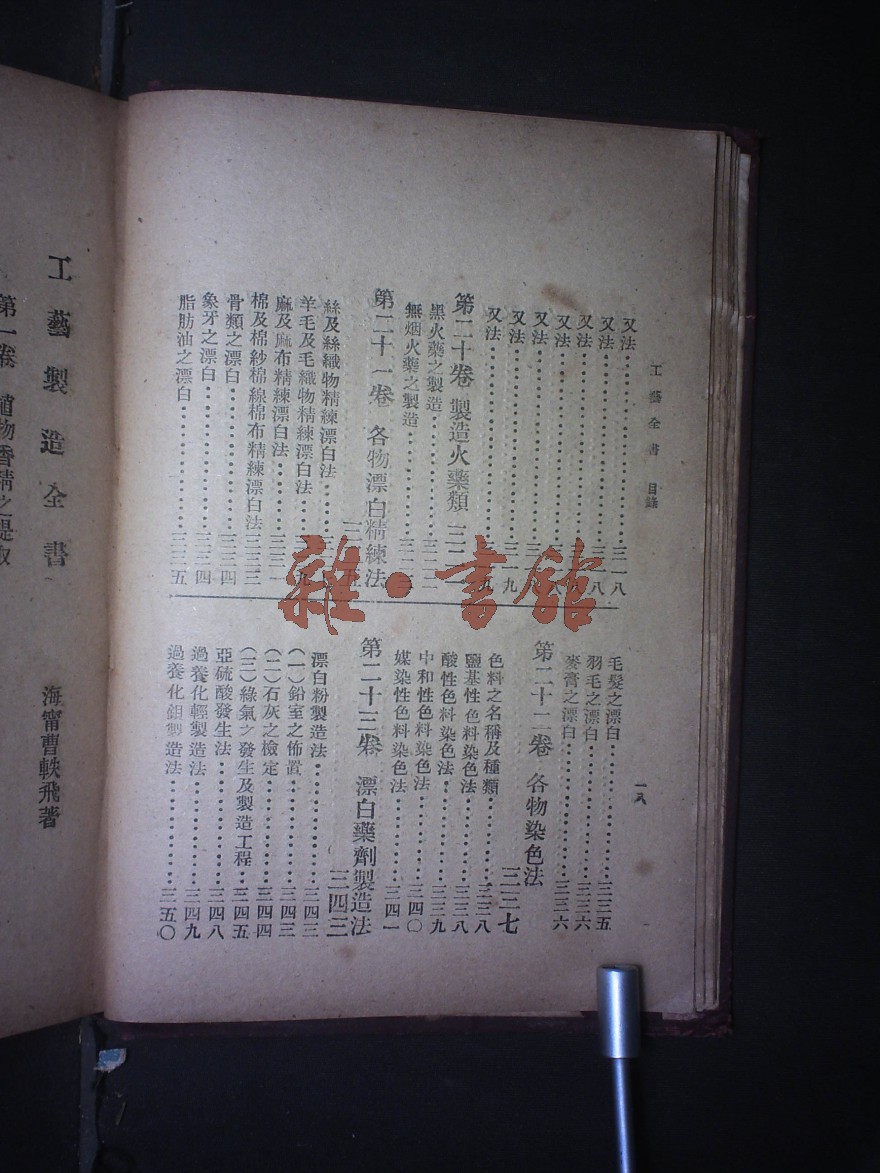 工藝全書 目錄
一八
又法……三一八
又法……八
又法……八
又法……八
又法……
又法……九
又法……九
第二十卷 製造火藥類
黑火藥之製造
無烟火藥之製造
第二十一卷 各物漂白精練法
絲及絲織物精練漂白法
羊毛及毛織物精練漂白法
麻及麻布精練漂白法
棉及棉紗棉線棉布精練漂白法 三二三
骨類之漂白……三二四
象牙之漂白……三二四
脂肪油之漂白……三二五
毛髮之漂白……三三五
羽毛之漂白……三三六
麥膏之漂白……三三六
第二十二卷 各物染色法 三二七
色料之名稱及種類……三三八
鹽基性色料染色法……三三八
酸性色料染色法……三三九
中和性色料染色法……三四〇
媒染性色料染色法……三四一
第二十三卷 漂白藥劑製造法 三四三
漂白粉製造法……三四三
(一)鉛室之佈置……三四三
(二)石灰之檢定……三四四
(三)綠氣之發生及製造工程……三四五
亞硫酸發生法……三四八
過養化輕製造法……三四九
過養化鋇製造法……三五〇
工藝製造全書
海甯曹軼飛著
第一卷 植物香精之提取
雜·書館